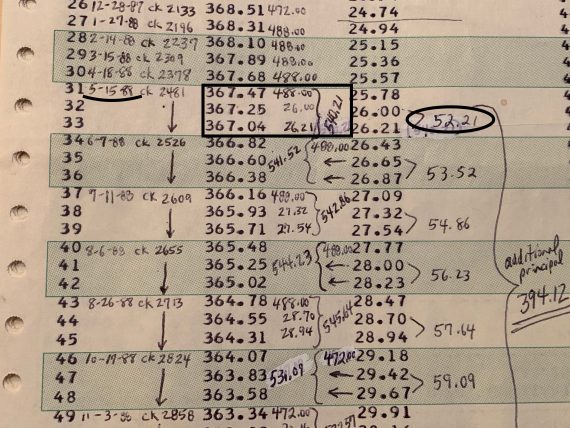 26 12-28-87 ck 2133 368.51 472.00 24.74
27 1-27-88 ck 2196 368.31 488.00 24.94
28 2-14-88 ck 2237 368.10 488.00 25.15
29 3-15-88 ck 2309 367.89 488.00 25.36
30 4-18-88 ck 2378 367.68 488.00 25.57
31 5-15-88 ck 2481 367.47 488.00 25.78
32 367.25 26.00 540.21 26.00 52.21
33 367.04 26.21 26.21
34 6-7-88 ck 2526 366.82 488.00 26.43
35 366.60 541.52 26.65 53.52
36 366.38 26.87
37 7-11-88 ck 2609 366.16 488.00 27.09
38 365.93 27.32 542.86 27.32 54.86
39 365.71 27.54 27.54
40 8-6-88 ck 2655 365.48 488.00 27.77
41 365.25 544.23 28.00 56.23
42 365.02 28.23
additional principal
394.12
43 8-26-88 ck 2713 364.78 488.00 28.47
44 364.55 28.70 545.64 28.70 57.64
45 364.31 28.94 28.94
46 10-19-88 ck 2824 364.07 472.00 29.18
47 363.83 531.09 29.42 59.09
48 363.58 29.67
49 11-3-88 ck 2858 363.34 472.00 29.91